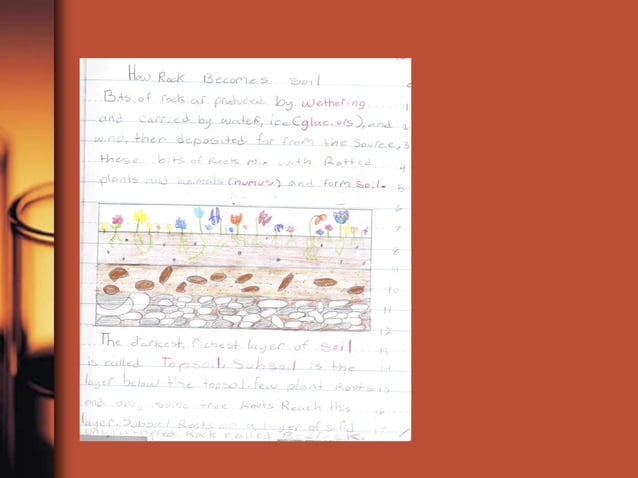 How Rock Becomes soil
Bits of rock ar produced by wethering
and carried by water, ice (glaciers), and
wind, then deposited far from the source,
these bits of Rock mix with Rotted
plants and animals (humus) and form soil.
The darkest, richest layer of soil
is called Topsoil. Subsoil is the
layer below the topsoil. few plant Roots is
and only some tree Roots Reach this
layer. Subsoil Rests on a layer of solid
Rock called Bedrock.
1
2
3
4
5
6
7
8
9
10
11
12
13
14
16
17